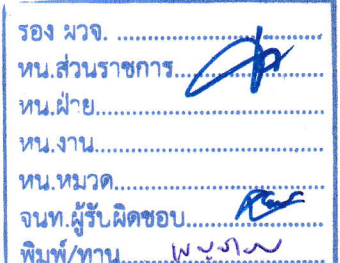 รอง ผวจ. ..............................
หน.ส่วนราชการ..............................
หน.ฝ่าย..............................
หน.งาน..............................
หน.หมวด..............................
จนท.ผู้รับผิดชอบ..............................
พิมพ์/ทาน..............................